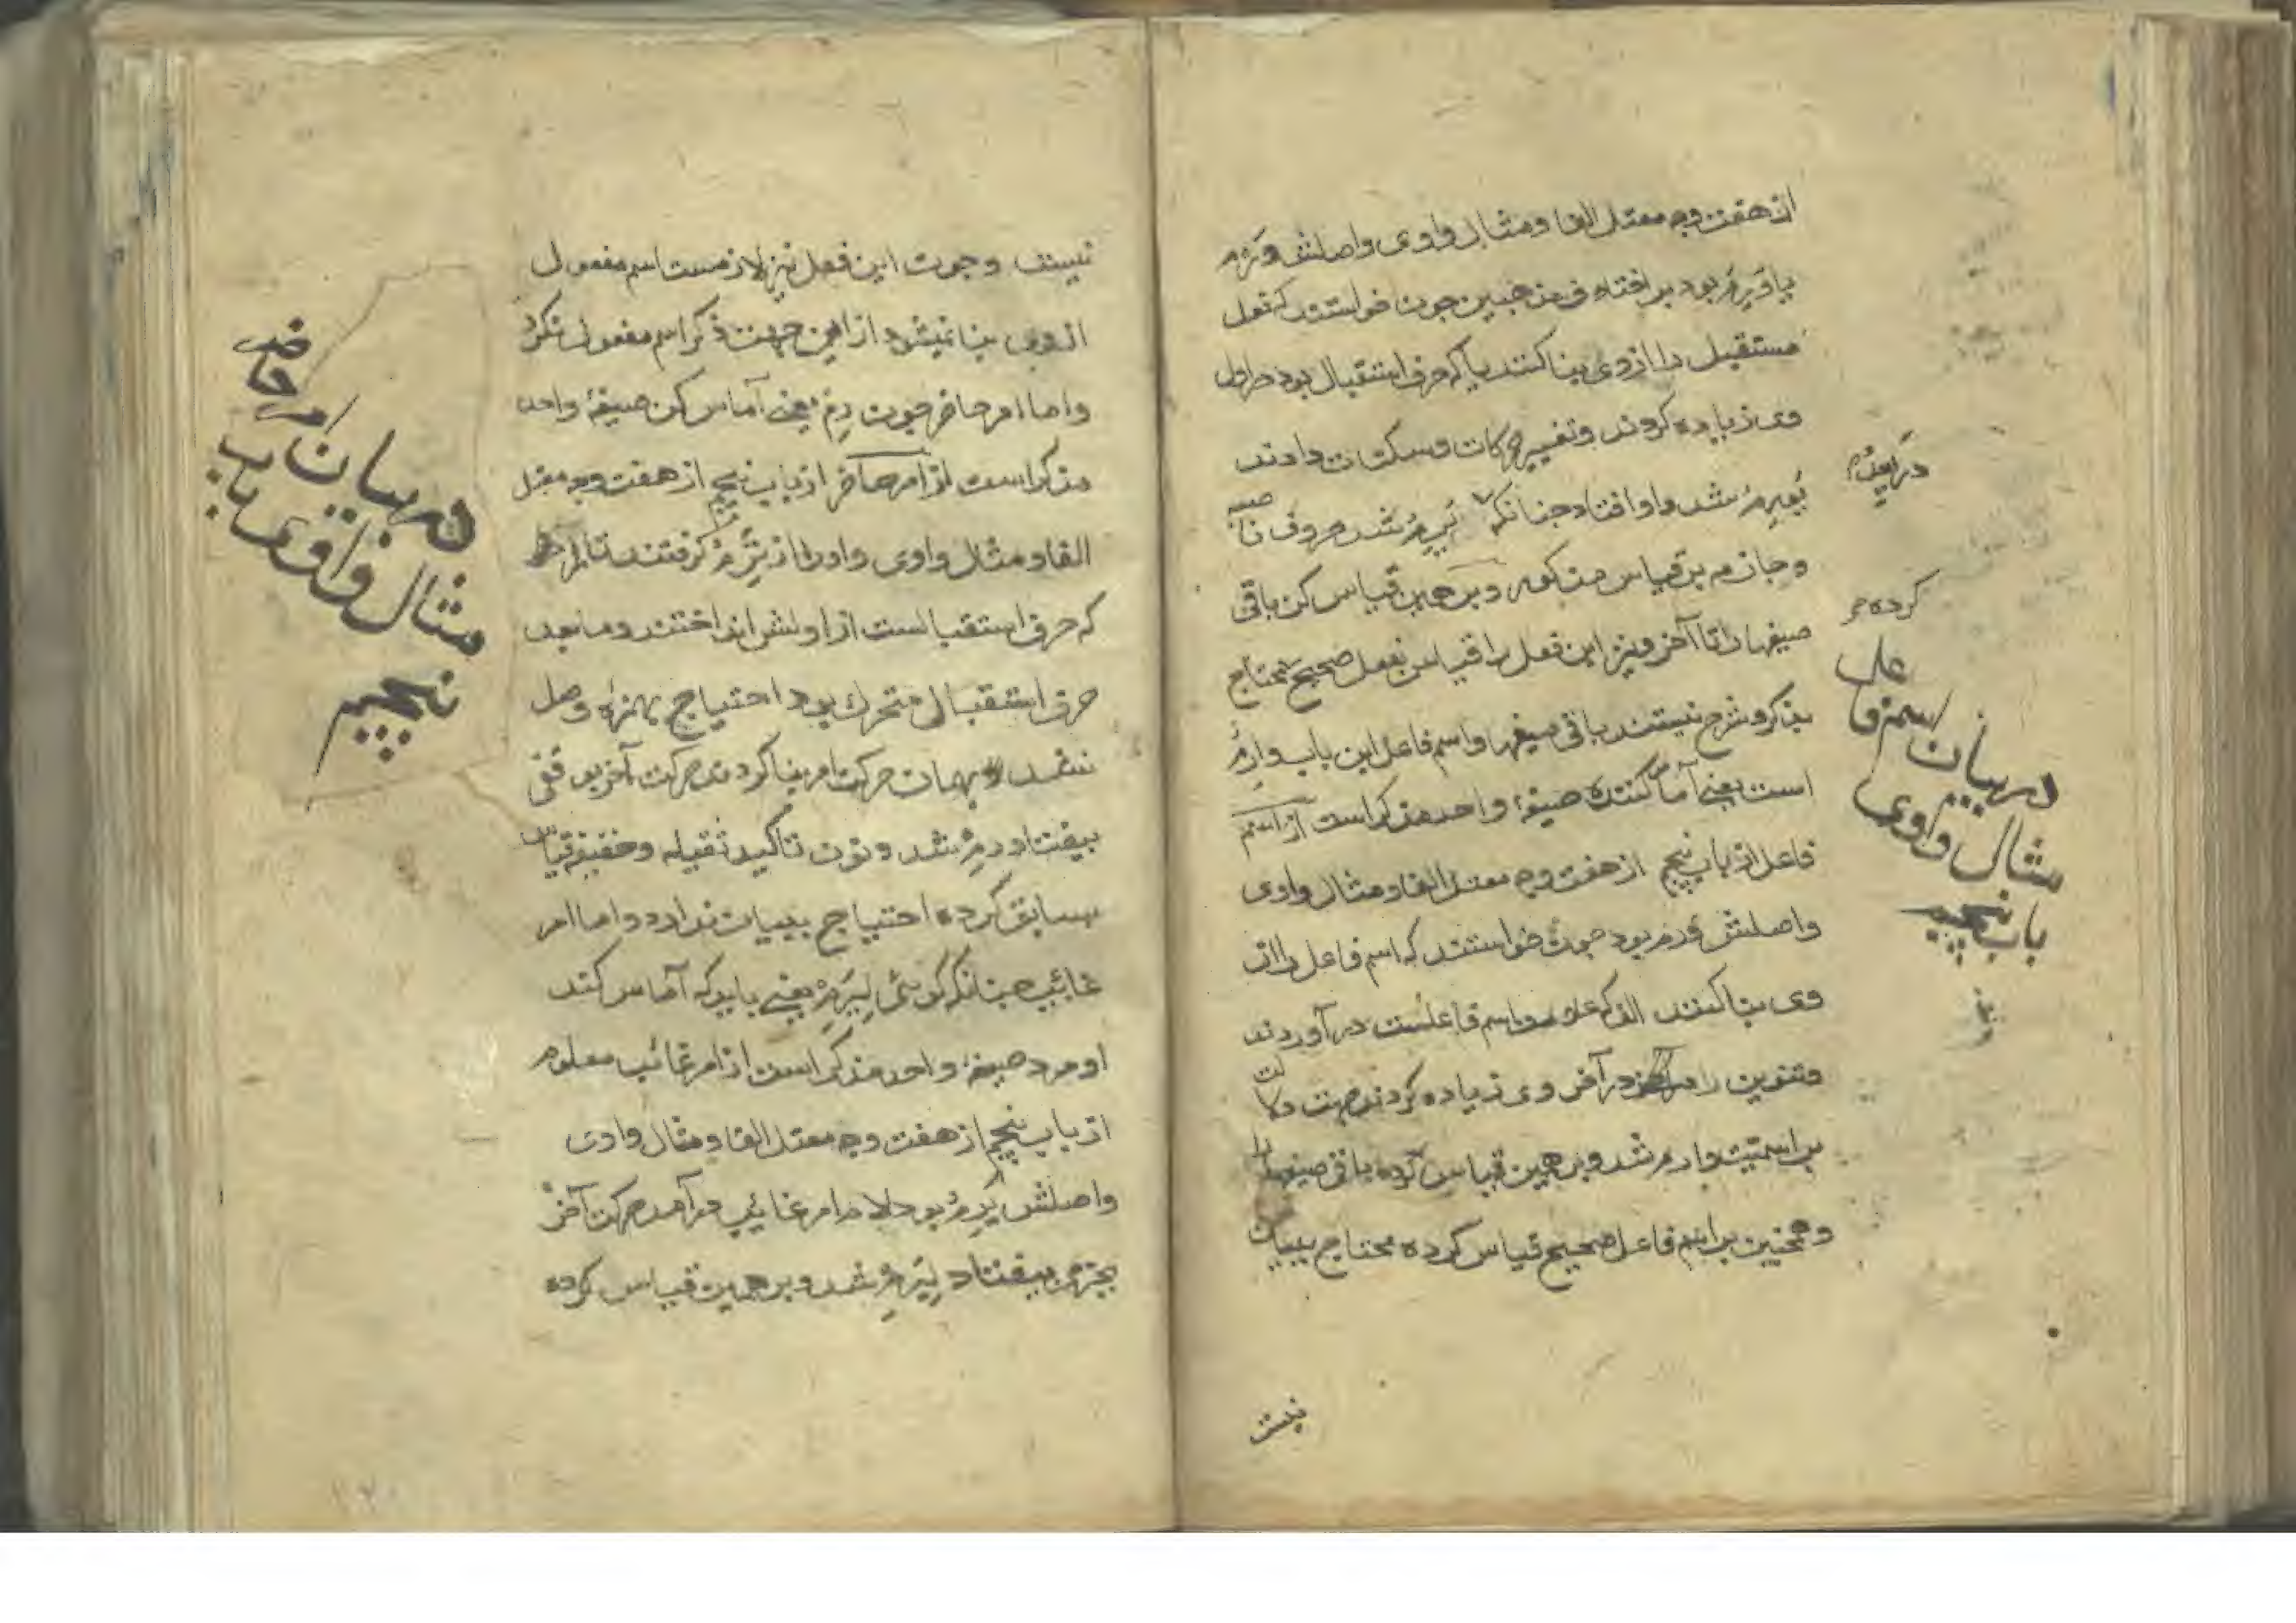 از هفت وجه معتل الفا و مثال واوی واصلش وَرِمَ
یا وَرِمَ بود بر افتاه فی من جبین چون خواستند که فعل
مستقبل را از وی بنا کنند یا که حرف استقبال بود در اول
وی زیاده کردند و تغییر حرکات و سکنات دادند
یَوْرِمُ شد واو افتاد چنانکه یَرِمُ شد حروف ناصبه
و جازمه بر قیاس مذکور و بر همین قیاس کن باقی
صیغها را تا آخر و نیز این فعل را قیاس بفعل صحیح محتاج
بذکر و شرح نیستند باقی صیغها و اسم فاعل این باب وارمٌ
است یعنی آماس کننده صیغهٔ واحد مذکر است از اسم
فاعل از باب پنجم از هفت وجه معتل الفا و مثال واوی
واصلش وَرِمَ بود چون خواستند که اسم فاعل را از
وی بنا کنند الف که علامت اسم فاعلست در آوردند
و تنوین را در آخر وی زیاده کردند جهت دلالت
بر اسمیت وارم شد و بر همین قیاس کرده باقی صیغها را
و همچنین بر اسم فاعل صحیح قیاس کرده محتاج ببیان
کرده
در بیان اسم فاعل
مثال واوی
باب پنجم
نیست
نیست و چون این فعل نیز لازمست اسم مفعول
از وی بنا نمیشود از این جهت ذکر اسم مفعول نکرد
و اما امر حاضر چون رِمْ یعنی آماس کن صیغهٔ واحد
مذکر است از امر حاضر از باب پنجم از هفت وجه معتل
الفا و مثال واوی و او را از تَرِمُ گرفتند تا را
که حرف استقبالست از اولش انداختند و مابعد
حرف استقبال متحرک بود احتیاج بهمزه وصل
نشد بهمان حرکت امر بنا کردند حرکت آخر بوقفی
بیفتاد رِمْ شد و نون تاکید ثقیله و خفیفه قیاس
بسابق کرده احتیاج ببیان ندارد و اما امر
غائب چنانکه گوئی لِیَرِمْ یعنی باید که آماس کند
او مرد صیغهٔ واحد مذکر است از امر غائب معلوم
از باب پنجم از هفت وجه معتل الفا و مثال وادی
واصلش یَرِمُ بود لام امر غائب در آمد حرکت آخر
بجزم بیفتاد لِیَرِمْ شد و بر همین قیاس کرده
در بیان امر حاضر
مثال واوی باب
پنجم